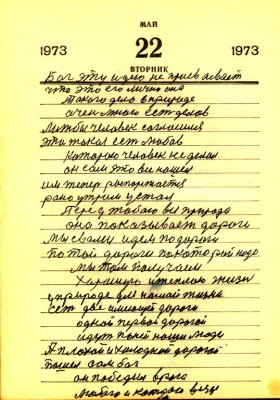 МАЙ
1973 22 1973
ВТОРНИК
Бог эту идею не присваевает
что это его лично она
Такого дело в природе
очен много ест делов
Людбы человек согласился
Эта такая ест любов
Которою человек не делал
он сам это все нашел
им тепер роспоряжается
рано утрам устал
Перед табою вся природа
она показывает дороги
Мы с вами идем по дороги
по той дороги по которой надо
мы там получаем
Хорошую и теплою жизн
у природе для нашей жизни
ест две имеющей дороги
одной первой дорогой
идут поней наши люди
А плохой и холодной дорогой
пошел сам бог
он победил врага
любого и каждого